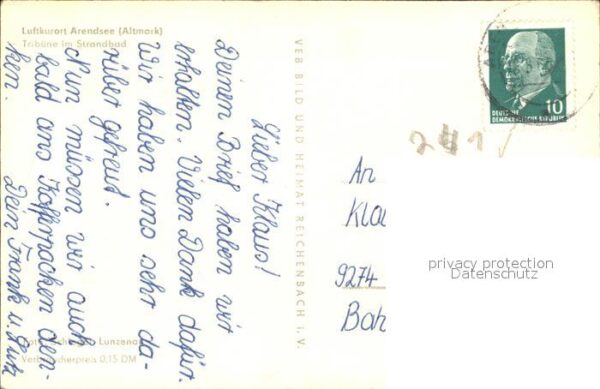 Luftkurort Arendsee (Altmark)
Tribüne im Strandbad
Lieber Klaus!
Deinen Brief haben wir
erhalten. Vielen Dank dafür.
Wir haben uns sehr da-
rüber gefreut.
Nun müssen wir auch
bald ans Kofferpacken den-
ken.
Dein Frank u. Lutz
VEB BILD UND HEIMAT REICHENBACH i. V.
Verbraucherpreis 0,15 DM
10
DEUTSCHE
DEMOKRATISCHE REPUBLIK
241
An
Kla
9274
Bah
privacy protection
Datenschutz